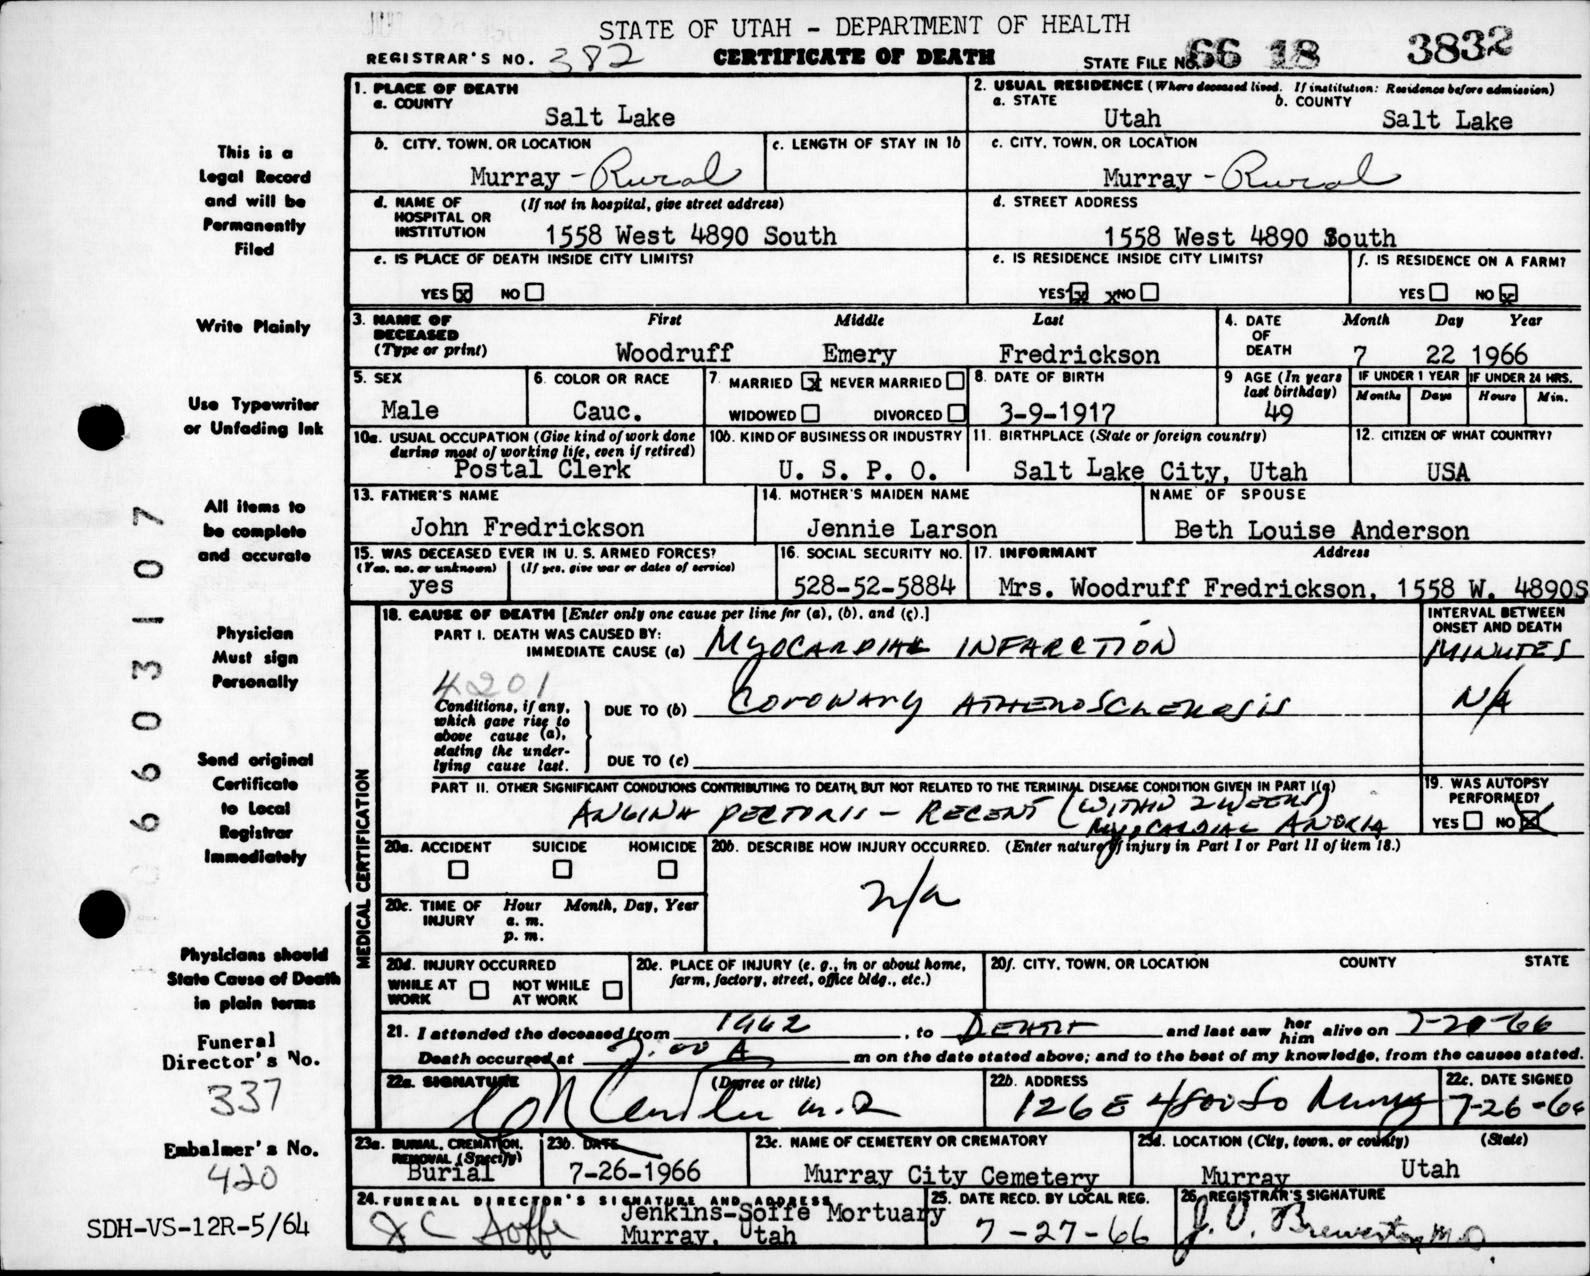 STATE OF UTAH - DEPARTMENT OF HEALTH
REGISTRAR'S NO. 382 CERTIFICATE OF DEATH STATE FILE NO. 66 18 3832
This is a Legal Record and will be Permanently Filed
Write Plainly
Use Typewriter or Unfading Ink
All items to be complete and accurate
Physician Must sign Personally
Send original Certificate to Local Registrar Immediately
Physicians should State Cause of Death in plain terms
Funeral Director's No.
337
Embalmer's No.
420
SDH-VS-12R-5/64
6603107
1. PLACE OF DEATH
a. COUNTY
Salt Lake
2. USUAL RESIDENCE (Where deceased lived. If institution: Residence before admission)
a. STATE b. COUNTY
Utah Salt Lake
b. CITY, TOWN, OR LOCATION c. LENGTH OF STAY IN 1b
Murray - Rural
c. CITY, TOWN, OR LOCATION
Murray - Rural
d. NAME OF HOSPITAL OR INSTITUTION (If not in hospital, give street address)
1558 West 4890 South
d. STREET ADDRESS
1558 West 4890 South
e. IS PLACE OF DEATH INSIDE CITY LIMITS?
YES x NO
e. IS RESIDENCE INSIDE CITY LIMITS?
YES x xNO
f. IS RESIDENCE ON A FARM?
YES NO x
3. NAME OF DECEASED (Type or print) First Middle Last
Woodruff Emery Fredrickson
4. DATE OF DEATH Month Day Year
7 22 1966
5. SEX
Male
6. COLOR OR RACE
Cauc.
7. MARRIED x NEVER MARRIED
WIDOWED DIVORCED
8. DATE OF BIRTH
3-9-1917
9 AGE (In years last birthday)
49
IF UNDER 1 YEAR IF UNDER 24 HRS.
Months Days Hours Min.
10a. USUAL OCCUPATION (Give kind of work done during most of working life, even if retired)
Postal Clerk
10b. KIND OF BUSINESS OR INDUSTRY
U. S. P. O.
11. BIRTHPLACE (State or foreign country)
Salt Lake City, Utah
12. CITIZEN OF WHAT COUNTRY?
USA
13. FATHER'S NAME
John Fredrickson
14. MOTHER'S MAIDEN NAME
Jennie Larson
NAME OF SPOUSE
Beth Louise Anderson
15. WAS DECEASED EVER IN U. S. ARMED FORCES?
(Yes, no, or unknown) (If yes, give war or dates of service)
yes
16. SOCIAL SECURITY NO.
528-52-5884
17. INFORMANT Address
Mrs. Woodruff Fredrickson, 1558 W. 4890S
MEDICAL CERTIFICATION
18. CAUSE OF DEATH [Enter only one cause per line for (a), (b), and (c).]
INTERVAL BETWEEN ONSET AND DEATH
PART I. DEATH WAS CAUSED BY:
IMMEDIATE CAUSE (a) MYOCARDIAL INFARCTION MINUTES
4201
Conditions, if any, which gave rise to above cause (a), stating the underlying cause last.
DUE TO (b) CORONARY ATHEROSCLEROSIS N/A
DUE TO (c)
PART II. OTHER SIGNIFICANT CONDITIONS CONTRIBUTING TO DEATH BUT NOT RELATED TO THE TERMINAL DISEASE CONDITION GIVEN IN PART I(a)
ANGINA PECTORIS - RECENT (WITHIN 2 WEEKS)
MYOCARDIAL ANOXIA
19. WAS AUTOPSY PERFORMED?
YES NO X
20a. ACCIDENT SUICIDE HOMICIDE
20b. DESCRIBE HOW INJURY OCCURRED. (Enter nature of injury in Part I or Part II of item 18.)
n/a
20c. TIME OF INJURY Hour Month, Day, Year
a. m.
p. m.
20d. INJURY OCCURRED
WHILE AT WORK NOT WHILE AT WORK
20e. PLACE OF INJURY (e. g., in or about home, farm, factory, street, office bldg., etc.)
20f. CITY, TOWN, OR LOCATION COUNTY STATE
21. I attended the deceased from 1962, to DEATH and last saw her him alive on 7-20-66
Death occurred at 7:00 A m on the date stated above; and to the best of my knowledge, from the causes stated.
22a. SIGNATURE (Degree or title)
M.D.
22b. ADDRESS
126 E 4800 So Murray
22c. DATE SIGNED
7-26-66
23a. BURIAL, CREMATION, REMOVAL (Specify)
Burial
23b. DATE
7-26-1966
23c. NAME OF CEMETERY OR CREMATORY
Murray City Cemetery
23d. LOCATION (City, town, or county) (State)
Murray Utah
24. FUNERAL DIRECTOR'S SIGNATURE AND ADDRESS
Jenkins-Soffe Mortuary
Murray, Utah
25. DATE RECD. BY LOCAL REG.
7-27-66
26. REGISTRAR'S SIGNATURE
J. O. Brewerton M.D.